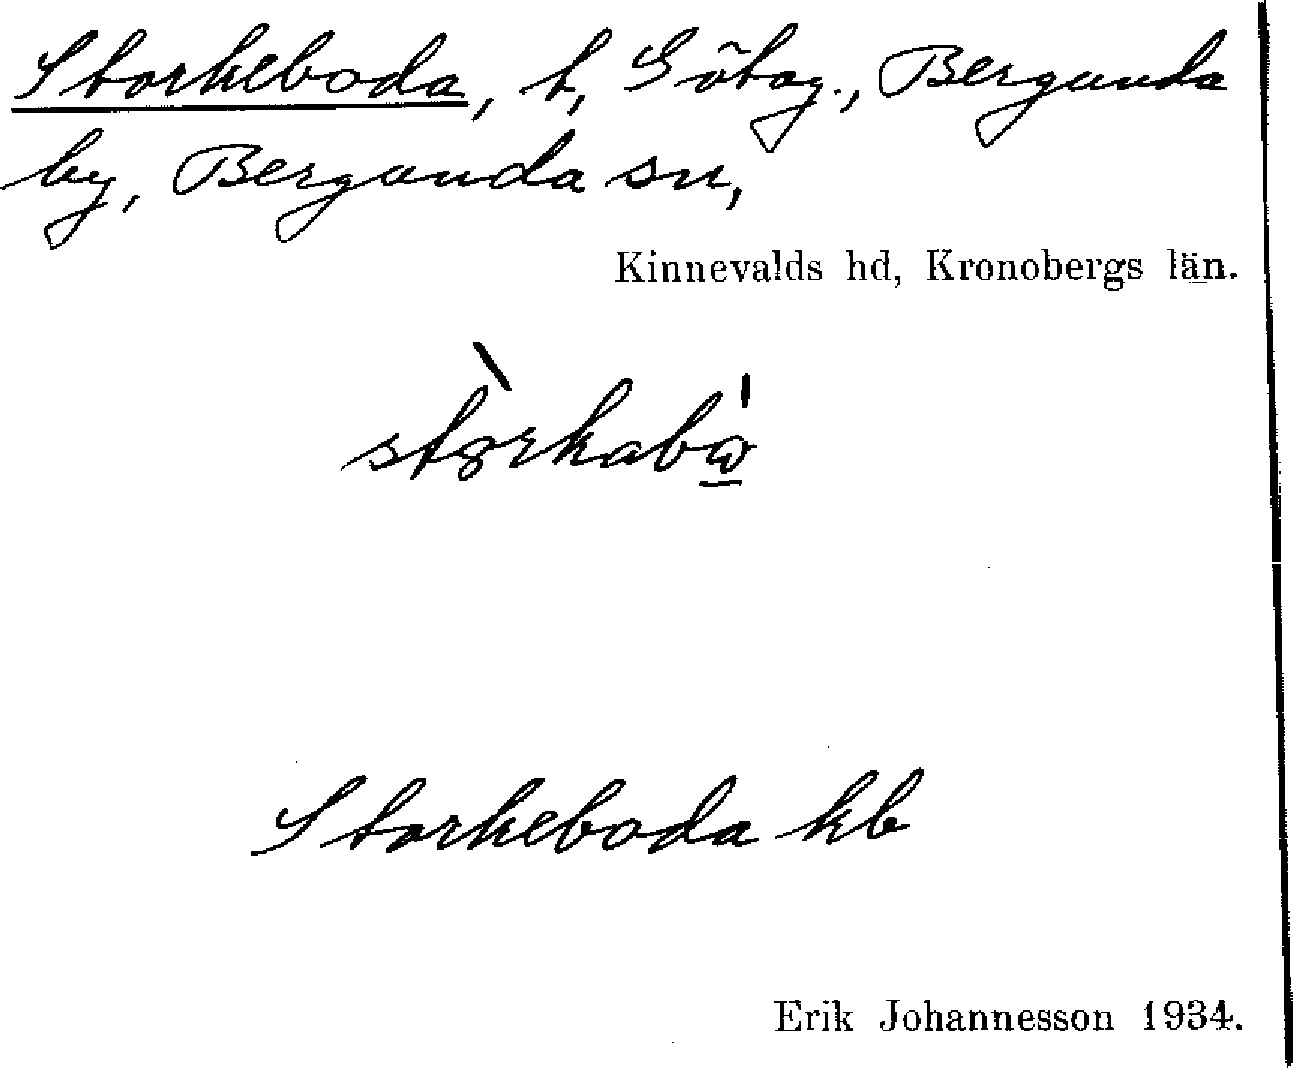 Storkeboda, t, Götag., Bergunda
by, Bergunda sn,
Kinnevalds hd, Kronobergs län.
Storkeboda kb
Erik Johannesson 1934.